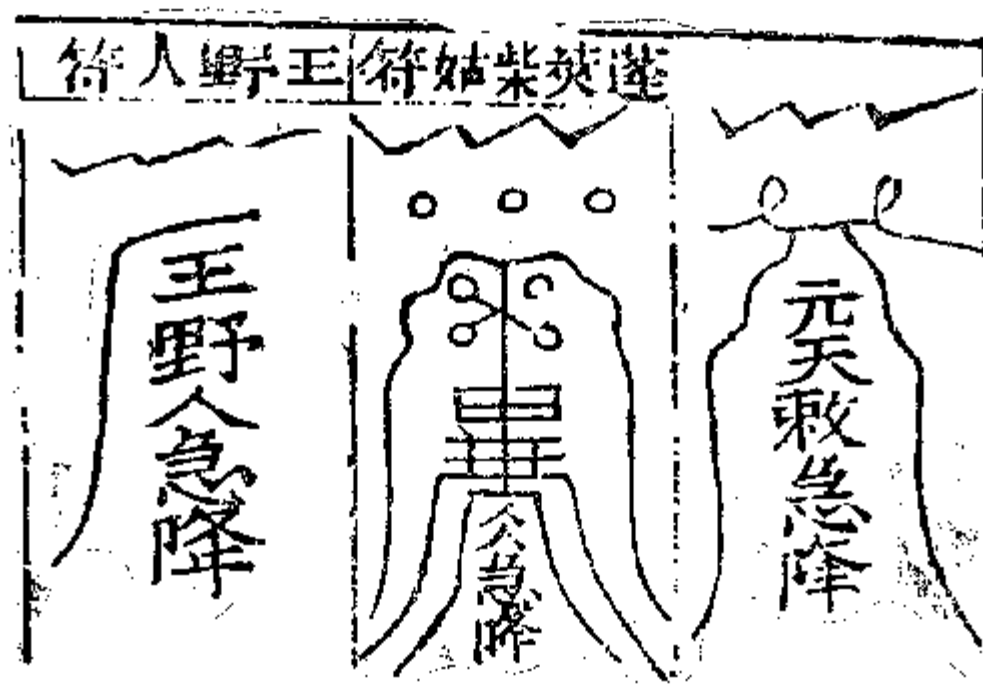 柴姑符
王野人符
元天敕急降
急降
王野人急降